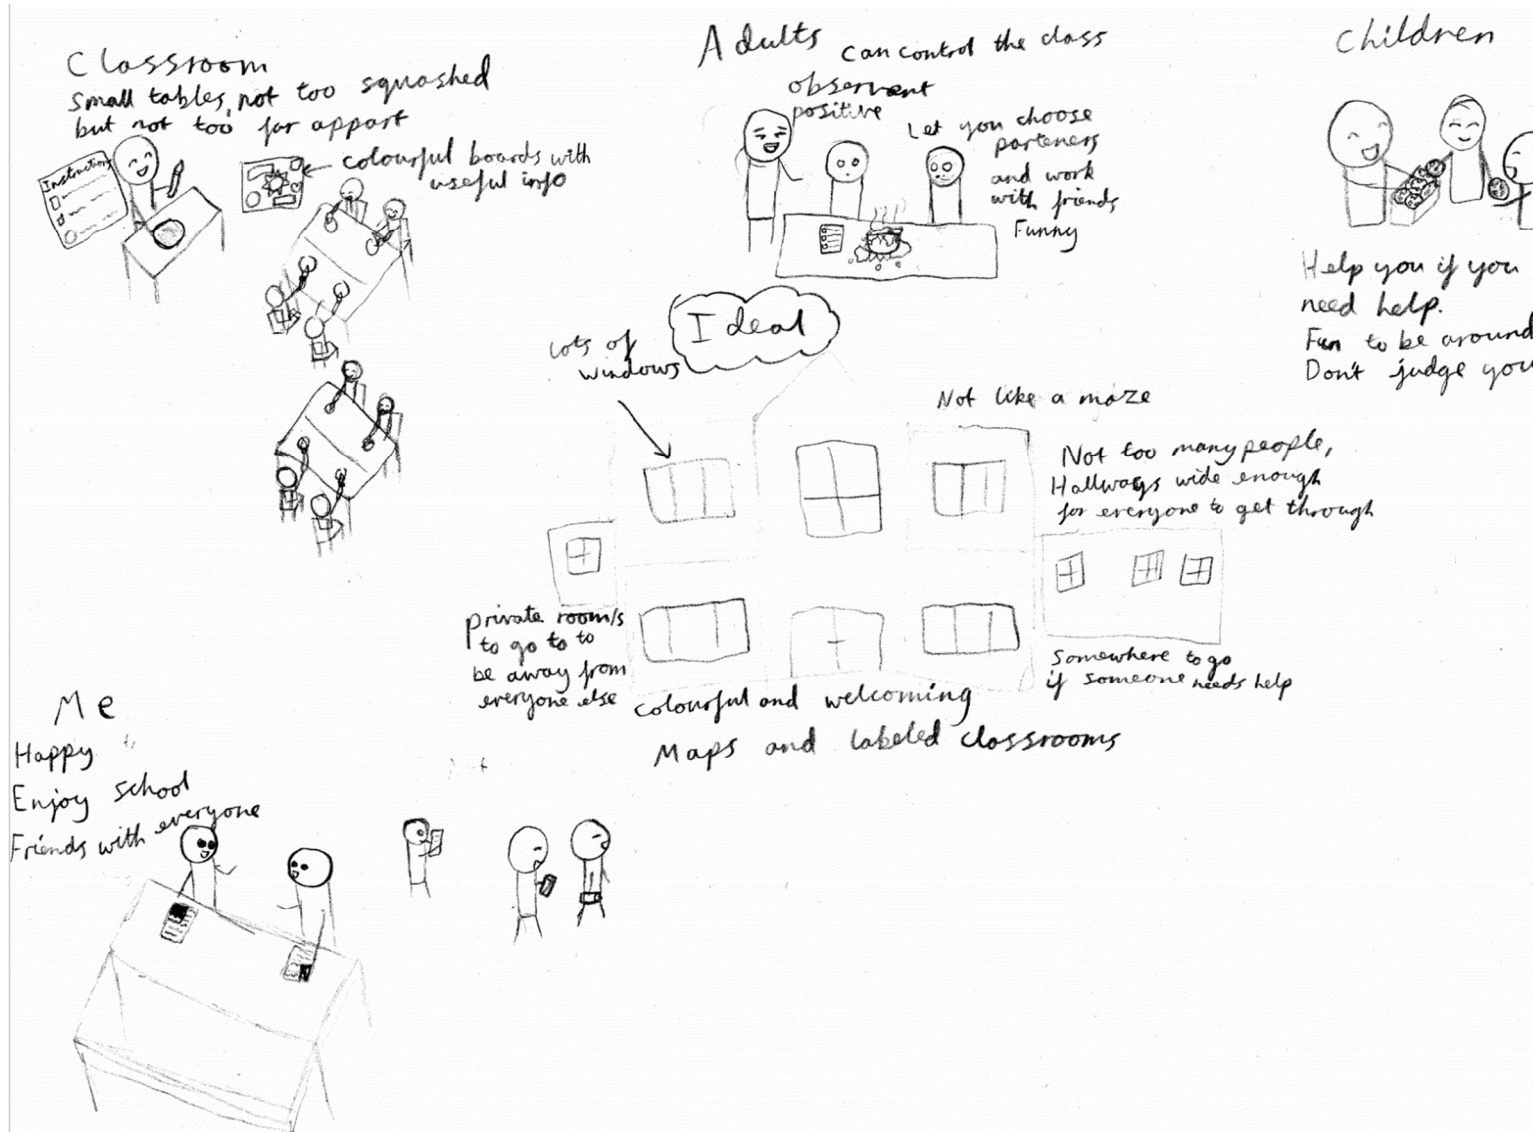 Classroom
Small tables, not too squashed
but not too far appart
Instructions
colourful boards with
useful info
Adults
can control the class
observent
positive
Let you choose
parteners
and work
with friends
Funny
Children
Help you if you
need help.
Fun to be around
Don't judge you
Ideal
Lots of
windows
Not like a maze
Not too many people,
Hallways wide enough
for everyone to get through
private room/s
to go to to
be away from
everyone else
Somewhere to go
if someone needs help
Colourful and welcoming
Maps and labeled classrooms
Me
Happy
Enjoy school
Friends with everyone